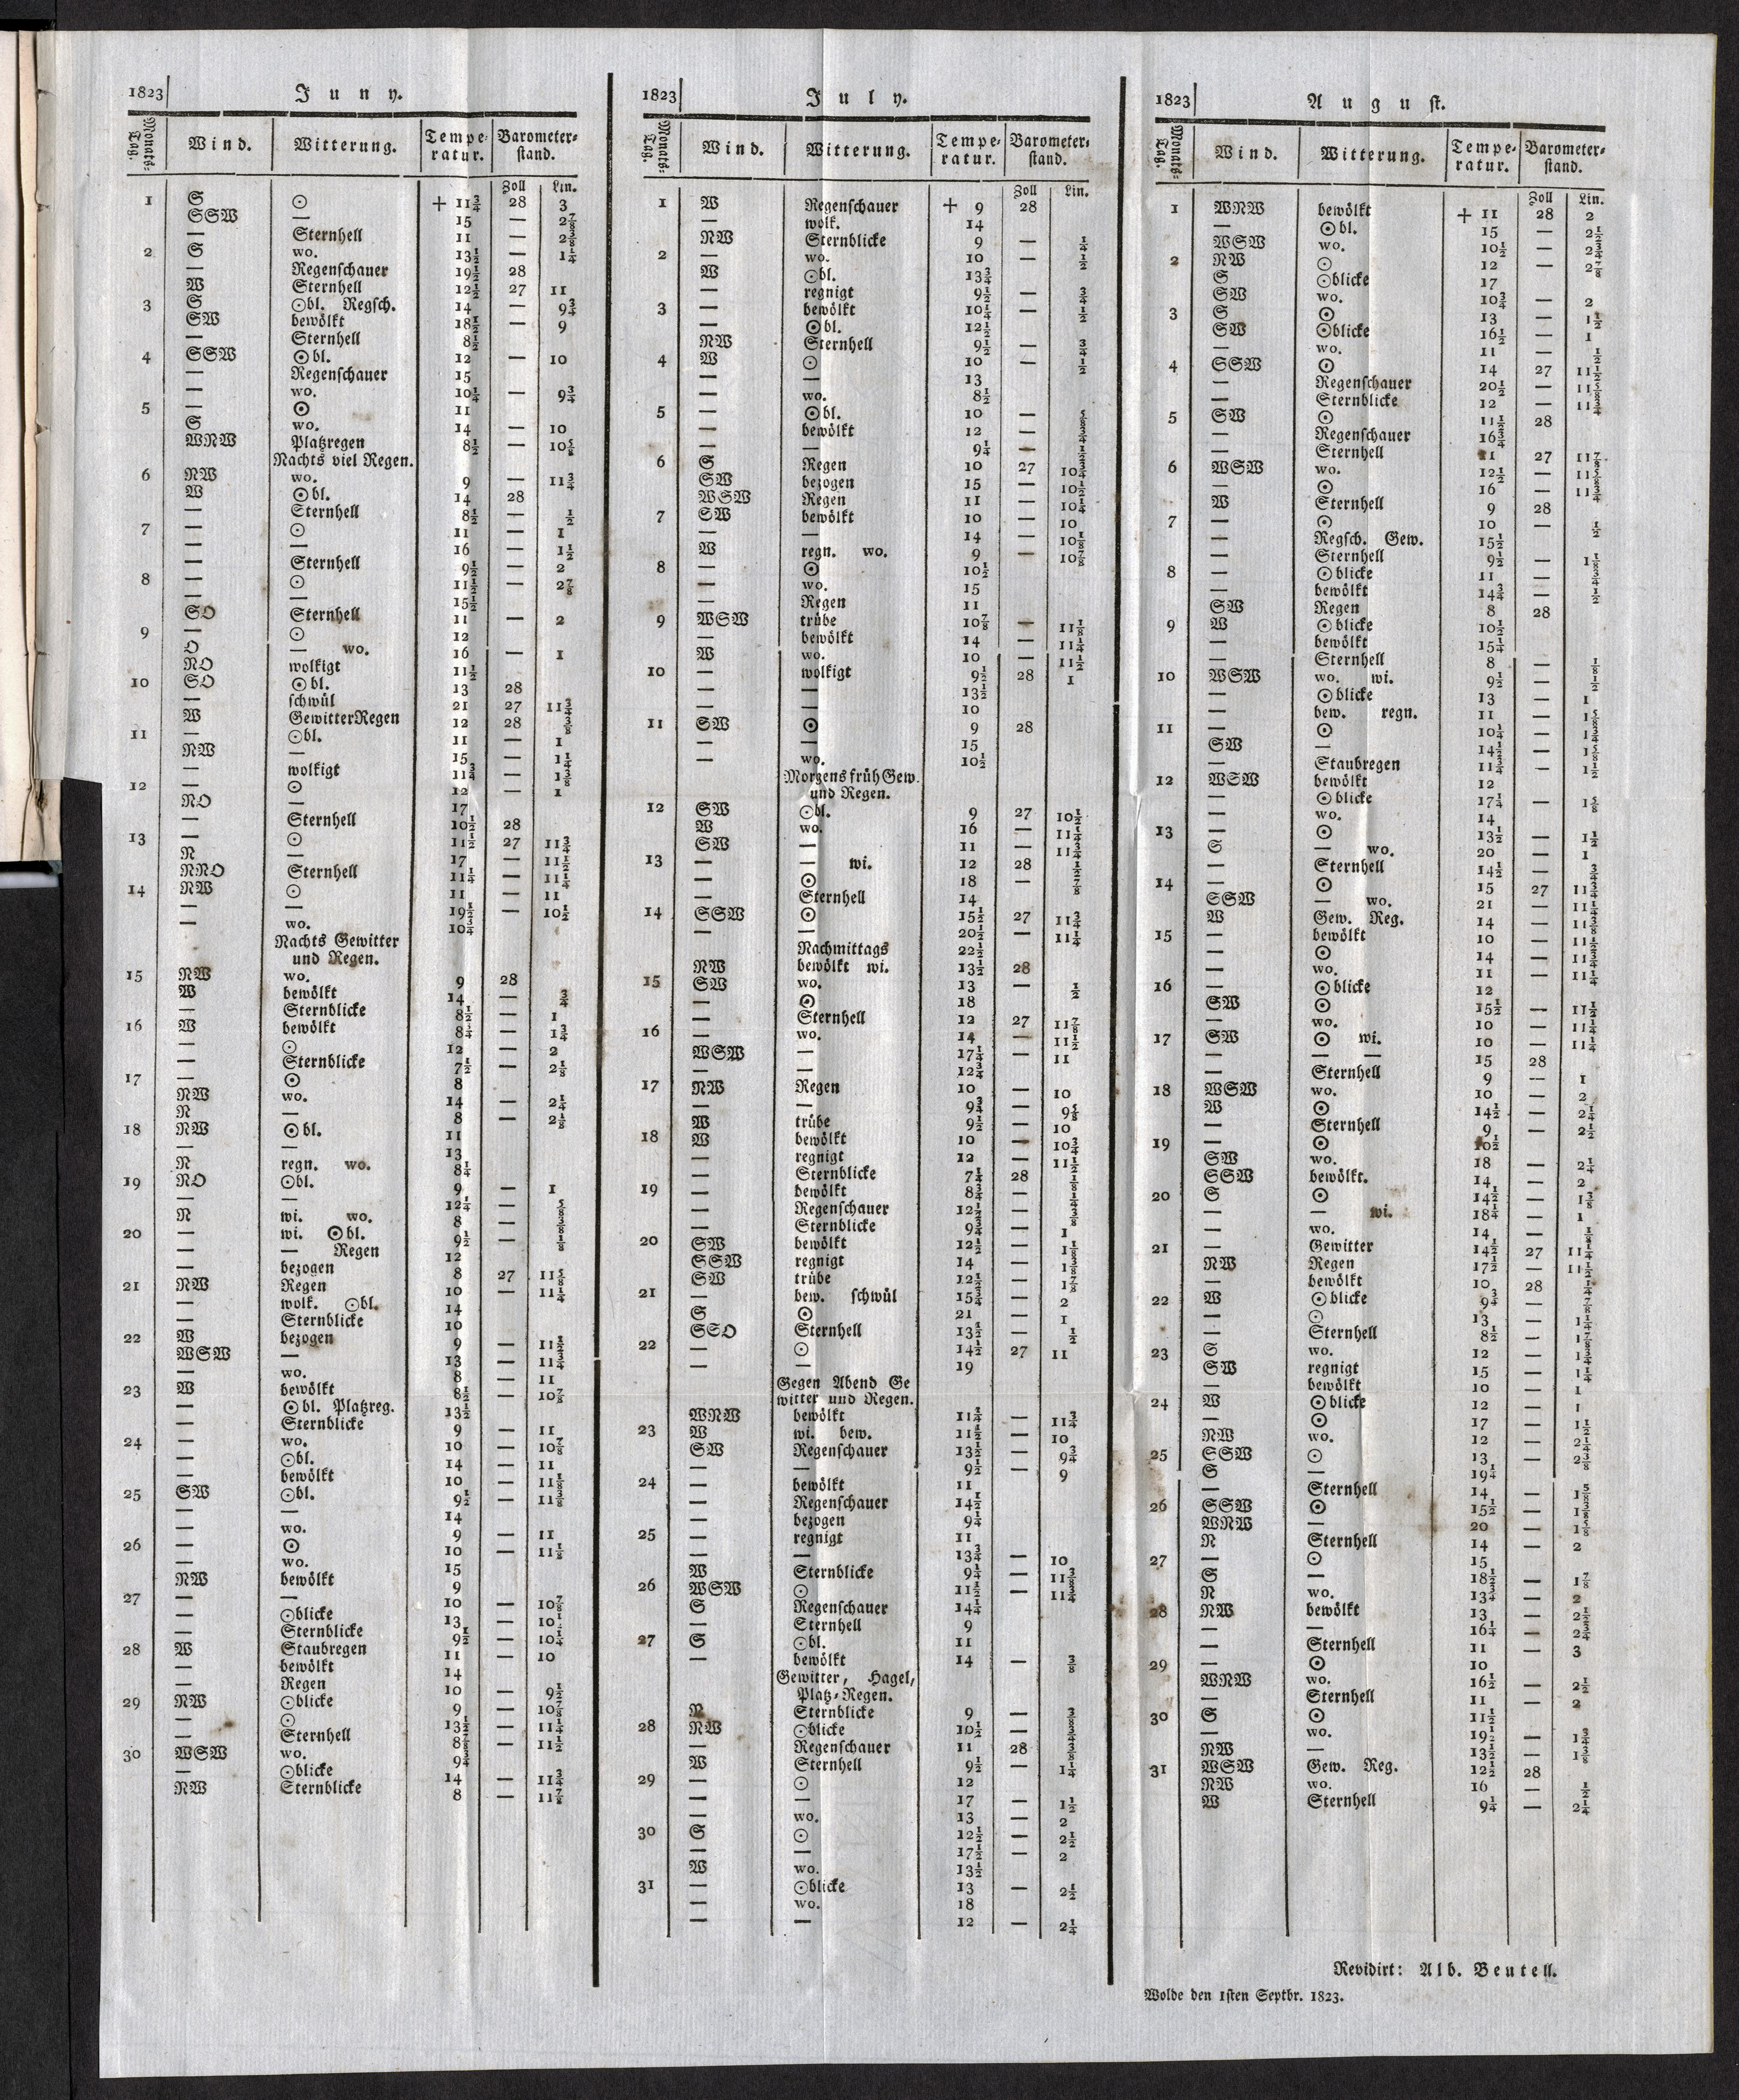 1823 Juny.
Monats-Tag. Wind. Witterung. Temperatur. Barometerstand.
Zoll Lin.
1 S ☉ + 11¾ 28 3
SSW — 15 — 2⅞
— Sternhell 11 — 2⅜
2 S wo. 13½ — 1¼
— Regenschauer 19½ 28
W Sternhell 12½ 27 11
3 S ☉bl. Regsch. 14 — 9¾
SW bewölkt 18½ — 9
— Sternhell 8½
4 SSW ☉bl. 12 — 10
— Regenschauer 15
— wo. 10¼ — 9¾
5 — ☉ 11
S wo. 14 — 10
WNW Platzregen 8½ — 10⅝
Nachts viel Regen.
6 NW wo. 9 — 11¾
W ☉bl. 14 28
— Sternhell 8½ — ½
7 — ☉ 11 — 1
— — 16 — 1½
— Sternhell 9½ — 2
8 — ☉ 11½ — 2⅞
— — 15½
SO Sternhell 11 — 2
9 — ☉ 12
O — wo. 16 — 1
NO wolkigt 11½
10 SO ☉bl. 13 28
— schwül 21 27 11¾
W GewitterRegen 12 28 ⅜
11 — ☉bl. 11 — 1
NW — 15 — 1¼
— wolkigt 11¾ — 1⅜
12 — ☉ 12 — 1
NO — 17
— Sternhell 10½ 28
13 — ☉ 11½ 27 11¾
N — 17 — 11½
NNO Sternhell 11¼ — 11¼
14 NW ☉ 11 — 11
— — 19½ — 10½
— wo. 10¾
Nachts Gewitter
und Regen.
15 NW wo. 9 28
W bewölkt 14 — ¾
— Sternblicke 8½ — 1
16 W bewölkt 8¼ — 1¾
— ☉ 12 — 2
— Sternblicke 7½ — 2⅛
17 — ☉ 8
NW wo. 14 — 2¼
N — 8 — 2⅛
18 NW ☉bl. 11
— — 13
N regn. wo. 8¼
19 NO ☉bl. 9 — 1
— — 12¼ — ⅝
N wi. wo. 8 — ⅜
20 — wi. ☉bl. 9½ — ⅛
— — Regen 12
— bezogen 8 27 11⅝
21 NW Regen 10 — 11¼
— wolk. ☉bl. 14
— Sternblicke 10
22 W bezogen 9 — 11½
WSW — 13 — 11¾
— wo. 8 — 11
23 W bewölkt 8½ — 10⅞
— ☉bl. Platzreg. 13½
— Sternblicke 9 — 11
24 — wo. 10 — 10⅞
— ☉bl. 14 — 11
— bewölkt 10 — 11⅛
25 SW ☉bl. 9½ — 11⅜
— — 14
— wo. 9 — 11
26 — ☉ 10 — 11⅛
— wo. 15
NW bewölkt 9
27 — — 10 — 10⅞
— ☉blicke 13 — 10¼
— Sternblicke 9½ — 10¼
28 W Staubregen 11 — 10
— bewölkt 14
— Regen 10 — 9½
29 NW ☉blicke 9 — 10⅞
— ☉ 13½ — 11¼
— Sternhell 8⅞ — 11½
30 WSW wo. 9¾
— ☉blicke 14 — 11¾
NW Sternblicke 8 — 11⅞
1823 July.
Monats-Tag. Wind. Witterung. Temperatur. Barometerstand.
Zoll Lin.
1 W Regenschauer + 9 28
— wolk. 14
NW Sternblicke 9 — ¼
2 — wo. 10 — ½
W ☉bl. 13¾
— regnigt 9½ — ¾
3 — bewölkt 10¼ — ½
— ☉bl. 12½
NW Sternhell 9½ — ¾
4 W ☉ 10 — ½
— — 13
— wo. 8½
5 — ☉bl. 10 — ⅝
— bewölkt 12 — ¾
— — 9¼ — ½
6 S Regen 10 27 10¾
SW bezogen 15 — 10½
WSW Regen 11 — 10¼
7 SW bewölkt 10 — 10
— — 14 — 10⅛
W regn. wo. 9 — 10⅞
8 — ☉ 10½
— wo. 15
— Regen 11
9 WSW trübe 10⅞ — 11⅛
— bewölkt 14 — 11¼
W wo. 10 — 11½
10 — wolkigt 9½ 28 1
— — 13½
— — 10
11 SW ☉ 9 28
— — 15
— wo. 10½
Morgens früh Gew.
und Regen.
12 SW ☉bl. 9 27 10½
W wo. 16 — 11¼
SW — 11 — 11¾
13 — — wi. 12 28 ½
— ☉ 18 — ⅞
— Sternhell 14
14 SSW ☉ 15½ 27 11¾
— — 20½ — 11¼
Nachmittags 22½
NW bewölkt wi. 13½ 28
15 SW wo. 13 — ½
— ☉ 18
— Sternhell 12 27 11⅞
16 — wo. 14 — 11½
WSW — 17¼ — 11
— — 12¾
17 NW Regen 10 — 10
— — 9¾ — 9⅝
W trübe 9½ — 10
18 W bewölkt 10 — 10¾
— regnigt 12 — 11½
— Sternblicke 7¼ 28 ⅛
19 — bewölkt 8¾ — ¼
— Regenschauer 12½ — ⅜
— Sternblicke 9¾ — 1
20 SW bewölkt 12½ — 1⅛
SSW regnigt 14 — 1⅜
SW trübe 12½ — 1⅞
21 — bew. schwül 15¾ — 2
S ☉ 21 — 1
SSO Sternhell 13½ — ½
22 — ☉ 14½ 27 11
— — 19
Gegen Abend Ge
witter und Regen.
WNW bewölkt 11¼ — 11¾
23 W wi. bew. 11½ — 10
SW Regenschauer 13½ — 9¾
— — 9½ — 9
24 — bewölkt 11
— Regenschauer 14½
— bezogen 9¼
25 — regnigt 11
— — 13¾ — 10
W Sternblicke 9¼ — 11⅜
26 WSW ☉ 11½ — 11¾
S Regenschauer 14¼
— Sternhell 9
27 S ☉bl. 11
— bewölkt 14 — ⅜
Gewitter, Hagel,
Platz-Regen.
N Sternblicke 9 — ⅜
28 NW ☉blicke 10½ — ¾
— Regenschauer 11 28 ⅜
W Sternhell 9½ — 1¼
29 — ☉ 12
— — 17 — 1½
— wo. 13 — 2
30 S ☉ 12½ — 2½
— — 17½ — 2
W wo. 13½
31 — ☉blicke 13 — 2½
— wo. 18
— — 12 — 2¼
1823 August.
Monats-Tag. Wind. Witterung. Temperatur. Barometerstand.
Zoll Lin.
1 WNW bewölkt + 11 28 2
— ☉bl. 15 — 2½
WSW wo. 10½ — 2¾
2 NW ☉ 12 — 2⅞
S ☉blicke 17
SW wo. 10¾ — 2
3 S ☉ 13 — 1½
SW ☉blicke 16½ — 1
— wo. 11 — ½
4 SSW ☉ 14 27 11½
— Regenschauer 20½ — 11⅝
— Sternblicke 12 — 11¾
5 SW ☉ 11½ 28
— Regenschauer 16¾
— Sternhell 11 27 11⅞
6 WSW wo. 12½ — 11⅝
— ☉ 16 — 11¾
W Sternhell 9 28
7 — ☉ 10 — ½
— Regsch. Gew. 15½
— Sternhell 9½ — 1⅛
8 — ☉blicke 11 — ¾
— bewölkt 14¾ — ½
SW Regen 8 28
9 W ☉blicke 10½
— bewölkt 15¼
— Sternhell 8 — ⅛
10 WSW wo. wi. 9½ — ½
— ☉blicke 13 — 1
— bew. regn. 11 — 1⅝
11 — ☉ 10¼ — 1¾
SW — 14½ — 1⅝
— Staubregen 11¾ — 1½
12 WSW bewölkt 12
— ☉blicke 17¼ — 1⅝
— wo. 14
13 — ☉ 13½ — 1½
S — wo. 20 — 1
— Sternhell 14½ — ¾
14 — ☉ 15 27 11¾
SSW — wo. 21 — 11¼
W Gew. Reg. 14 — 11⅜
15 — bewölkt 10 — 11½
— ☉ 14 — 11¾
— wo. 11 — 11¼
16 — ☉blicke 12
SW ☉ 15½ — 11½
— wo. 10 — 11¼
17 SW ☉ wi. 10 — 11¼
— — — 15 28
— Sternhell 9 — 1
18 WSW wo. 10 — 2
W ☉ 14½ — 2¼
— Sternhell 9 — 2½
19 — ☉ 10½
SW wo. 18 — 2¼
SSW bewölkt. 14 — 2
20 S ☉ 14½ — 1⅜
— — wi. 18¼ — 1
— wo. 14 — ⅛
21 — Gewitter 14½ 27 11¼
NW Regen 17½ — 11½
— bewölkt 10 28 ¼
22 W ☉blicke 9¾ — ⅞
— ☉ 13 — 1¼
— Sternhell 8½ — 1⅞
23 S wo. 12 — 1¾
SW regnigt 15 — 1¼
— bewölkt 10 — 1
24 W ☉blicke 12 — 1
— ☉ 17 — 1½
NW wo. 12 — 2¼
25 SSW ☉ 13 — 2⅜
S — 19¼
— Sternhell 14 — 1⅝
26 SSW ☉ 15½ — 1⅜
WNW — 20 — 1⅝
N Sternhell 14 — 2
27 — ☉ 15
S — 18½ — 1⅞
N wo. 13¾ — 2
28 NW bewölkt 13 — 2½
— — 16¼ — 2¾
— Sternhell 11 — 3
29 — ☉ 10
WNW wo. 16½ — 2½
— Sternhell 11 — 2
30 S ☉ 11½
— wo. 19½ — 1¾
NW — 13½ — 1⅜
31 WSW Gew. Reg. 12½ 28
NW wo. 16 — ½
W Sternhell 9¼ — 2¼
Revidirt: Alb. Beutell.
Wolde den 1sten Septbr. 1823.